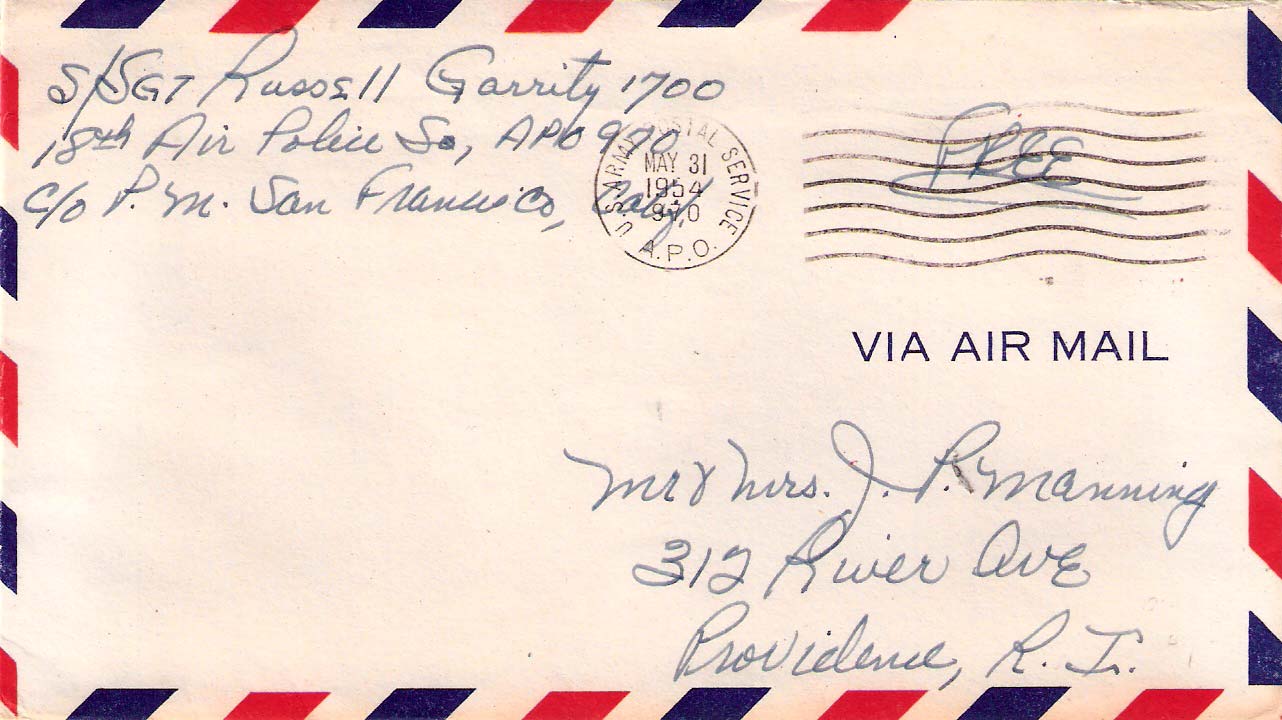 S/SGT Russell Garrity 1700
18th Air Police Sq, APO 970
c/o P.M. San Francisco, Calif,
U.S. ARMY POSTAL SERVICE
MAY 31
1954
970
A.P.O.
FREE
VIA AIR MAIL
Mr & Mrs. J. P. Manning
312 River Ave
Providence, R. I.